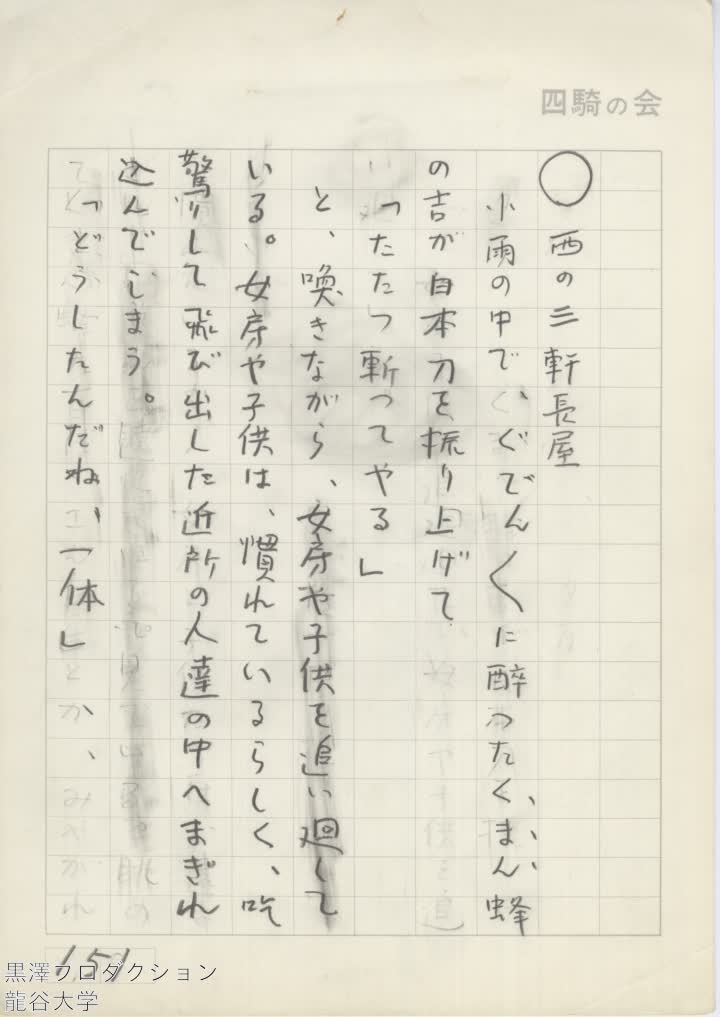 四騎の会
○ 西の三軒長屋
小雨の中で、ぐでん〱に酔ったくまん蜂
の吉が日本刀を振り上げて
「たたっ斬ってやる」
と、喚きながら、女房や子供を追い廻して
いる。女房や子供は、慣れているらしく、吃
驚りして飛び出した近所の人達の中へまぎれ
込んでしまう。
「どうしたんだね、一体」
151
黒澤プロダクション
龍谷大学